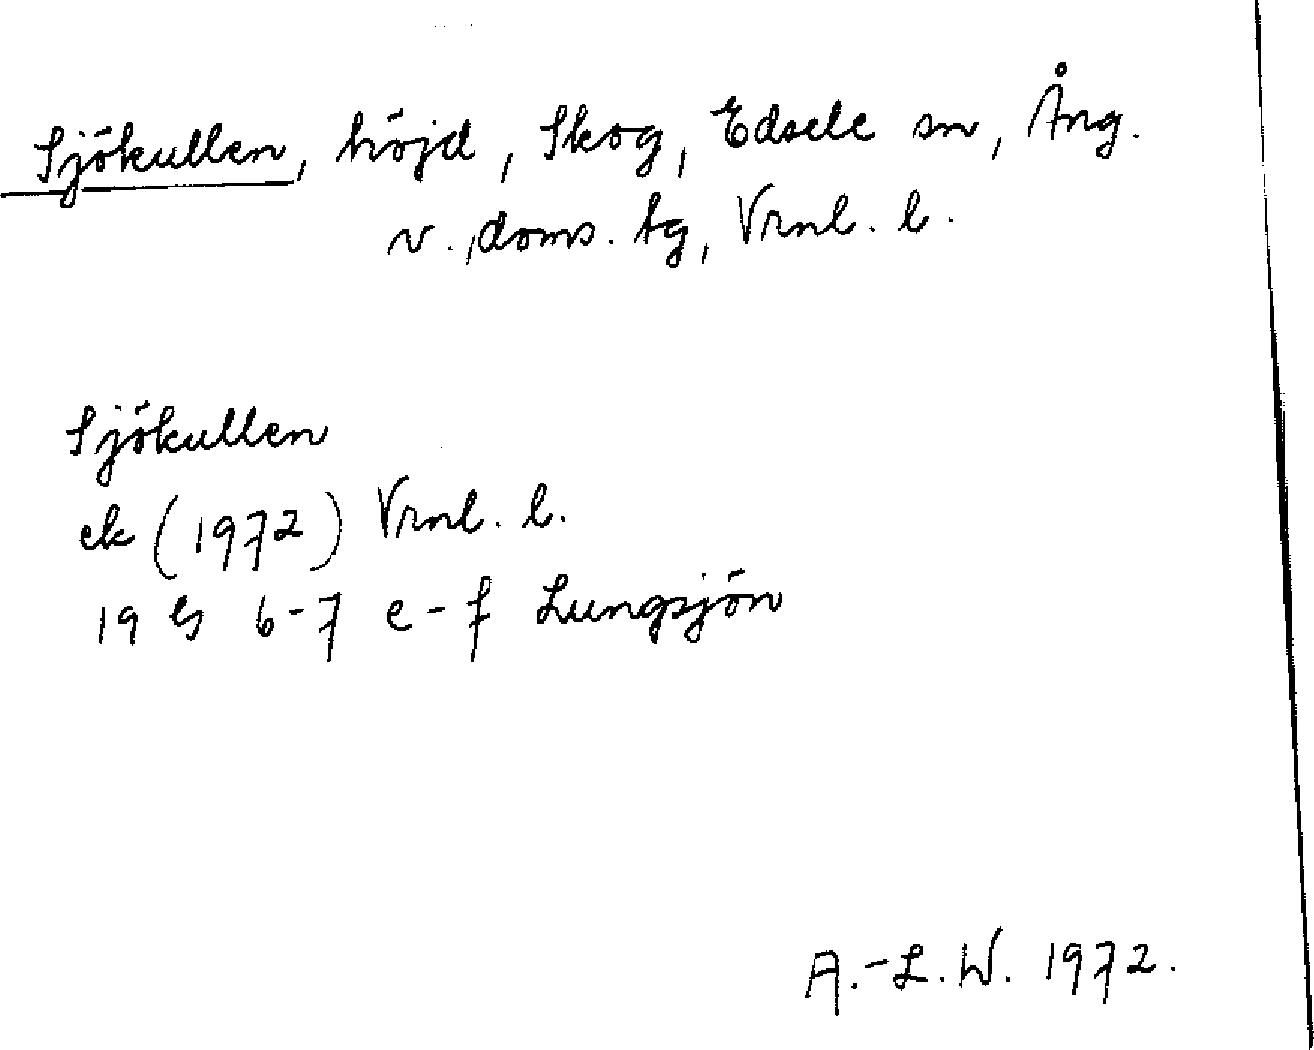 Sjökullen, höjd, Skog, Edsele sn, Ång.
v., doms. tg, Vrnl. l.
Sjökullen
ek (1972) Vrnl. l.
19 G 6-7 e-f Lungsjön
A.-L. W. 1972.